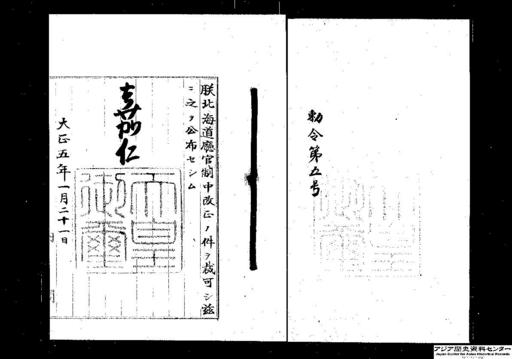 勅令第五号
朕北海道廳官制中改正ノ件ヲ裁可シ茲
ニ之ヲ公布セシム
嘉仁
天皇御璽
大正五年一月二十一日
アジア歴史資料センター
Japan Center for Asian Historical Records